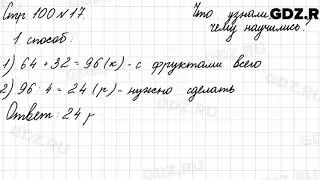 Стр 100 N 17.
Что узнали,
чему научились?
GDZ.RU
1 способ:
1) 64 + 32 = 96 (к) - с фруктами всего
2) 96 : 4 = 24 (р) - нужно сделать
Ответ: 24 р